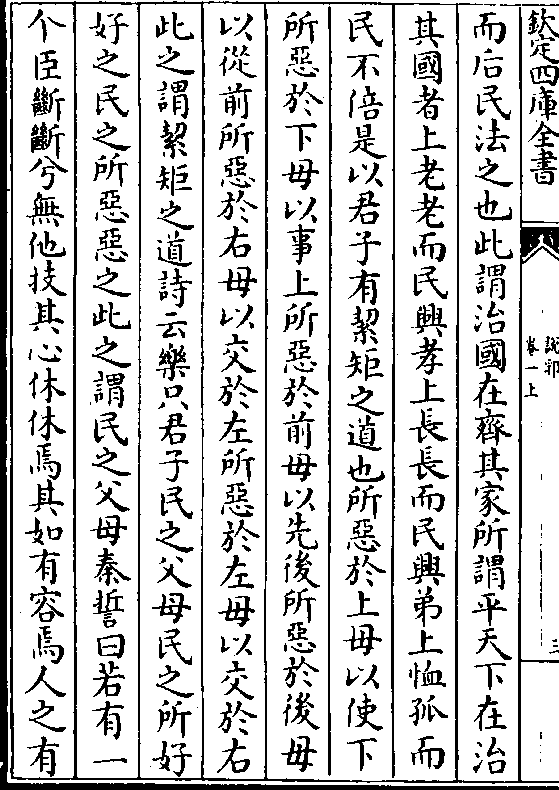 欽定四庫全書
說郛
卷一上
三
而后民法之也此謂治國在齊其家所謂平天下在治
其國者上老老而民興孝上長長而民興弟上恤孤而
民不倍是以君子有絜矩之道也所惡於上毋以使下
所惡於下毋以事上所惡於前毋以先後所惡於後毋
以從前所惡於右毋以交於左所惡於左毋以交於右
此之謂絜矩之道詩云樂只君子民之父母民之所好
好之民之所惡惡之此之謂民之父母秦誓曰若有一
个臣斷斷兮無他技其心休休焉其如有容焉人之有